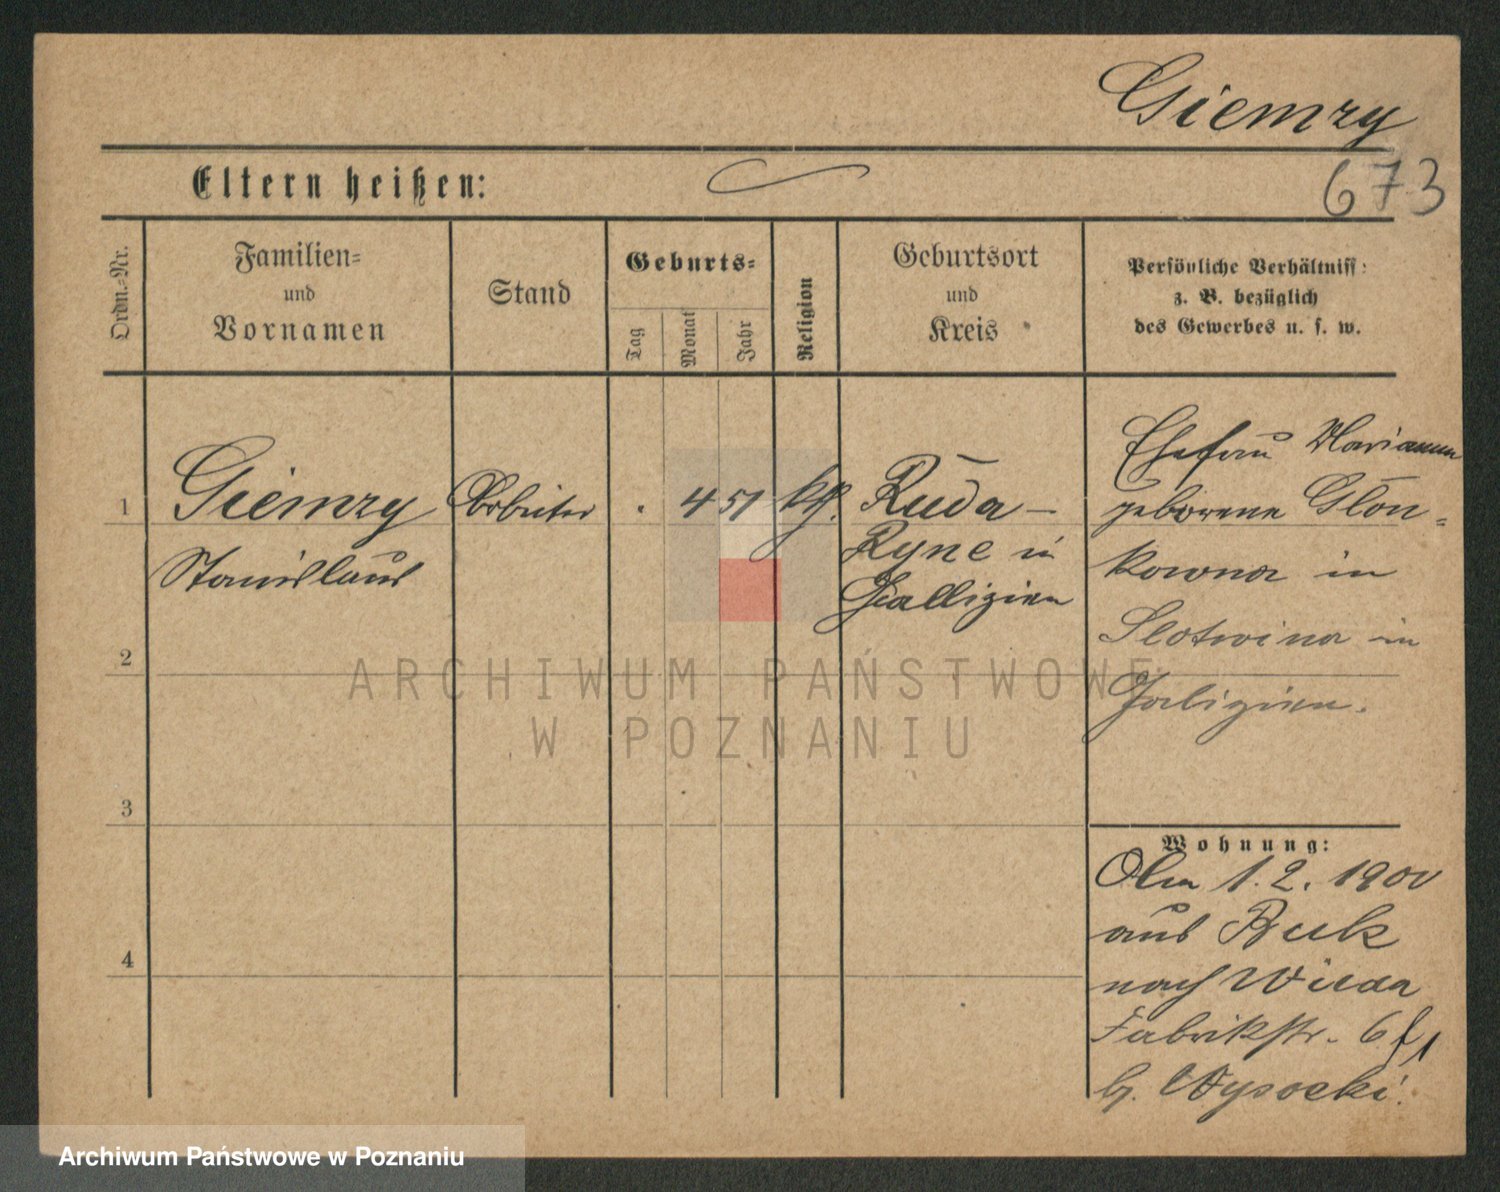 Giemzy
673
Eltern heißen:
Ordn.-Nr.
Familien-
und
Vornamen
Stand
Geburts-
Tag
Monat
Jahr
Religion
Geburtsort
und
Kreis
Persönliche Verhältniss:
z. B. bezüglich
des Gewerbes u. s. w.
1
Giemzy
Stanislaus
Arbeiter
4 51
kth.
Ruda –
Ryne in
Gallizien
Ehefrau Marianna
geborene Glon-
kowna in
Slotwina in
Galizien.
2
3
4
Wohnung:
Am 1. 2. 1900
aus Buk
nach Wilda
Fabrikstr. 6
b. Wysocki.
ARCHIWUM PAŃSTWOWE
W POZNANIU
Archiwum Państwowe w Poznaniu